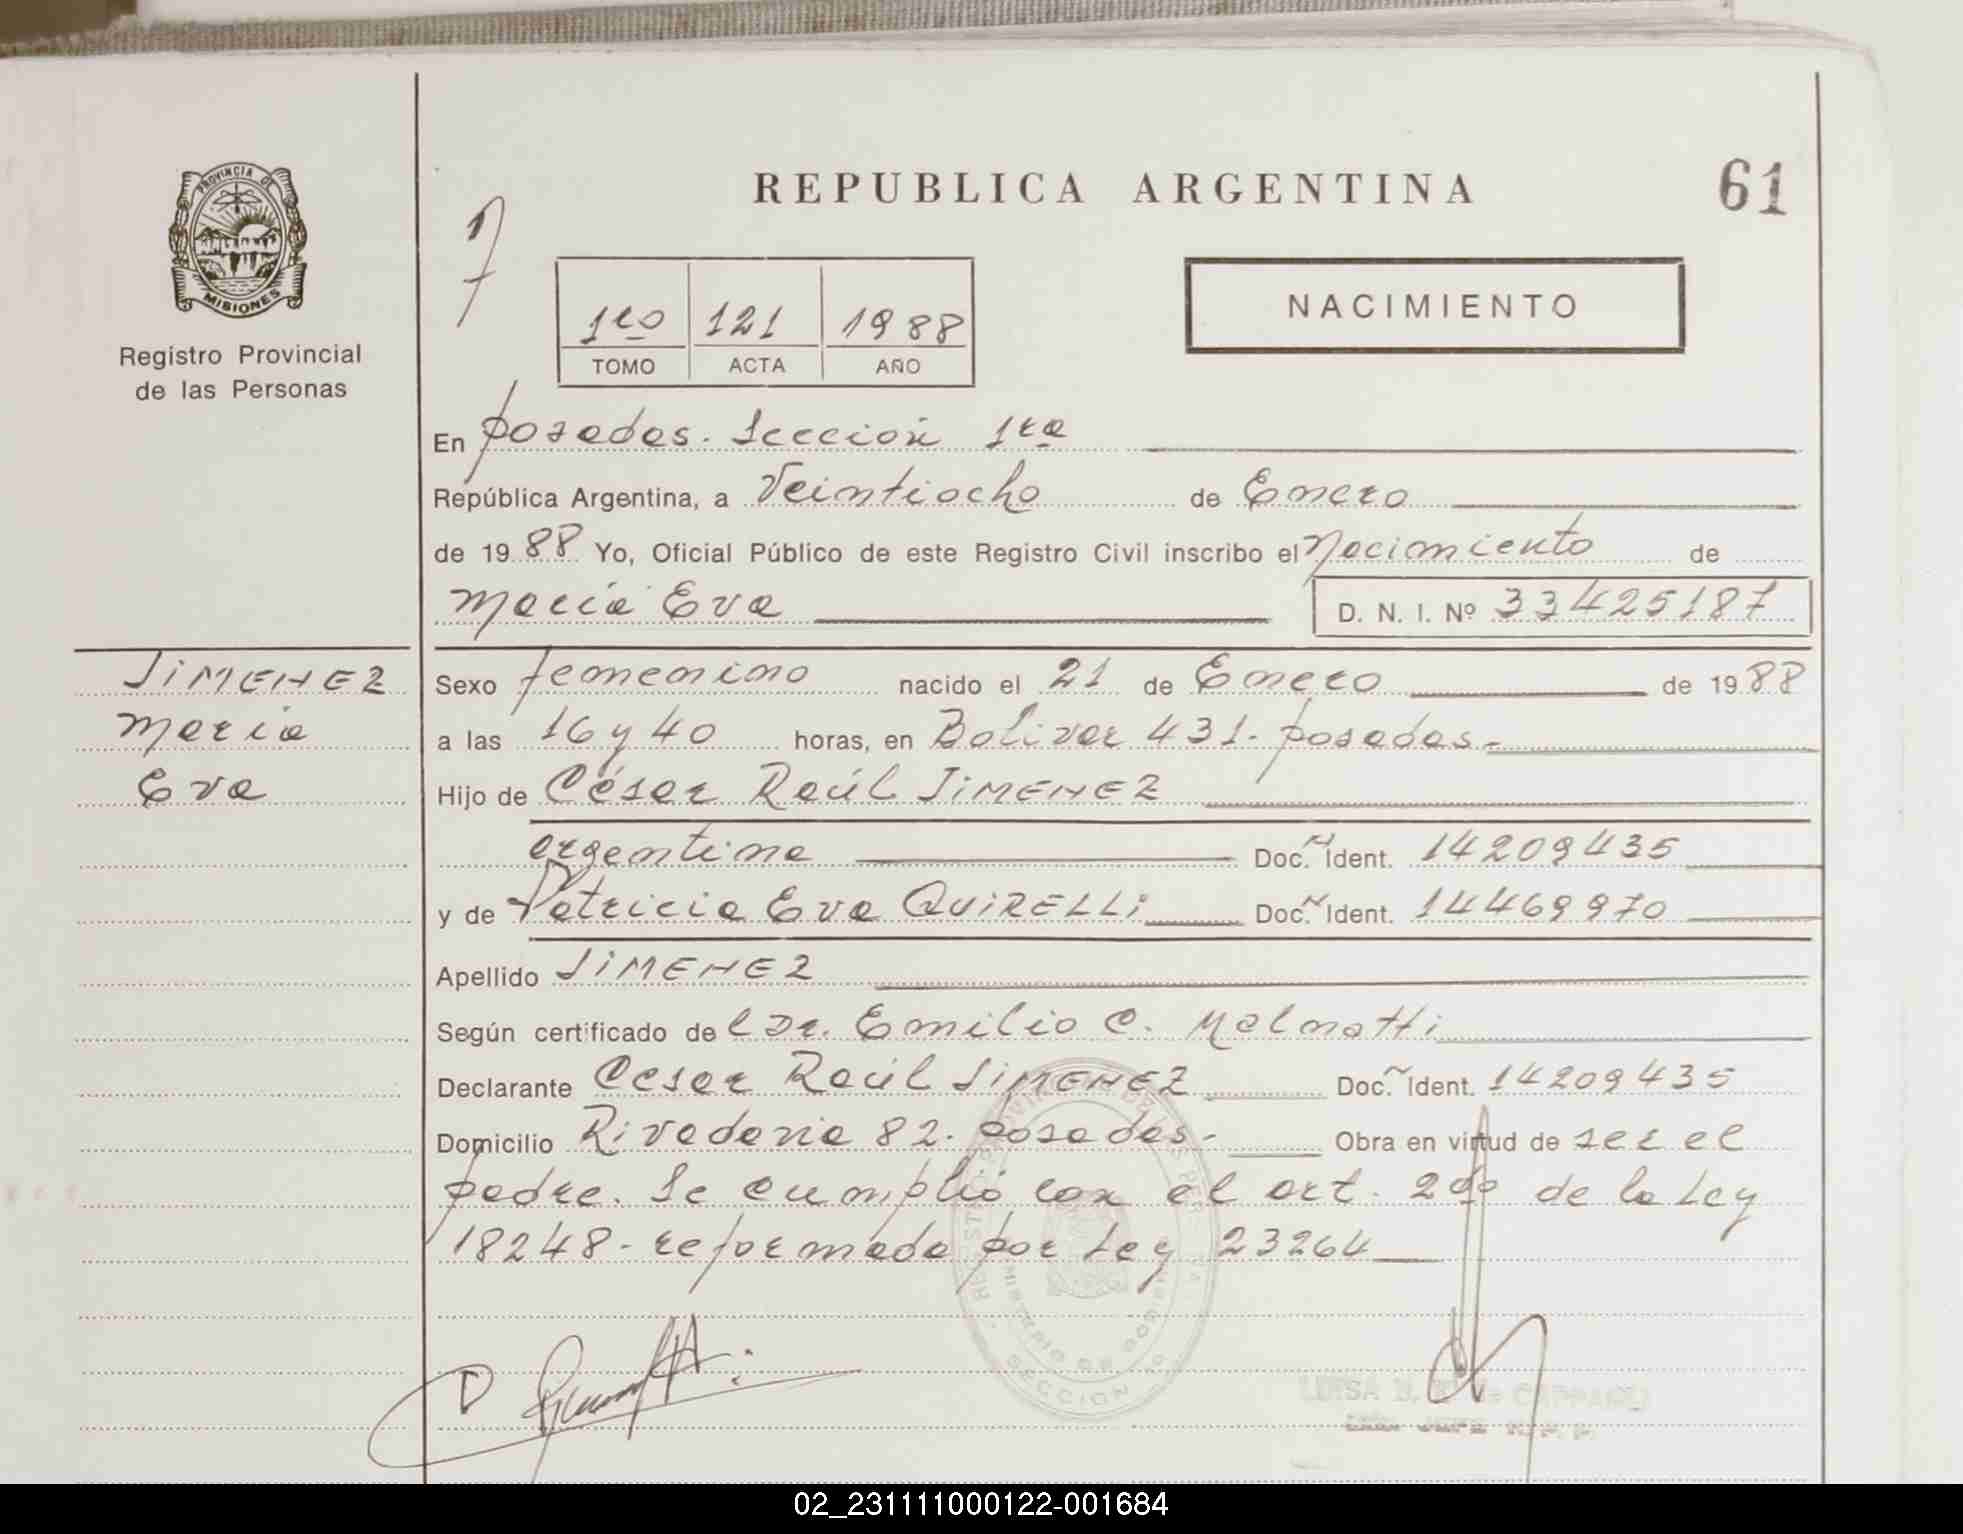 REPUBLICA ARGENTINA
61
PROVINCIA DE
MISIONES
Registro Provincial
de las Personas
1ro 121 1988
TOMO ACTA AÑO
NACIMIENTO
En Posadas. Sección 1ra
República Argentina, a Veintiocho de Enero
de 1988 Yo, Oficial Público de este Registro Civil inscribo el Nacimiento de
María Eva D. N. I. Nº 33425187
JIMENEZ
María
Eva
Sexo femenino nacido el 21 de Enero de 1988
a las 16 y 40 horas, en Bolivar 431. Posadas.-
Hijo de César Raúl JIMENEZ
argentina Doc. Ident. 14209435
y de Patricia Eva QUIRELLI Doc. Ident. 14469970
Apellido JIMENEZ
Según certificado del Dr. Emilio C. Malnatti
Declarante Cesar Raúl JIMENEZ Doc. Ident. 14209435
Domicilio Rivadavia 82. Posadas.- Obra en virtud de ser el
padre. Se cumplió con el art. 2do de la Ley
18248-reformada por Ley 23264
SECCION
LUISA
02_231111000122-001684